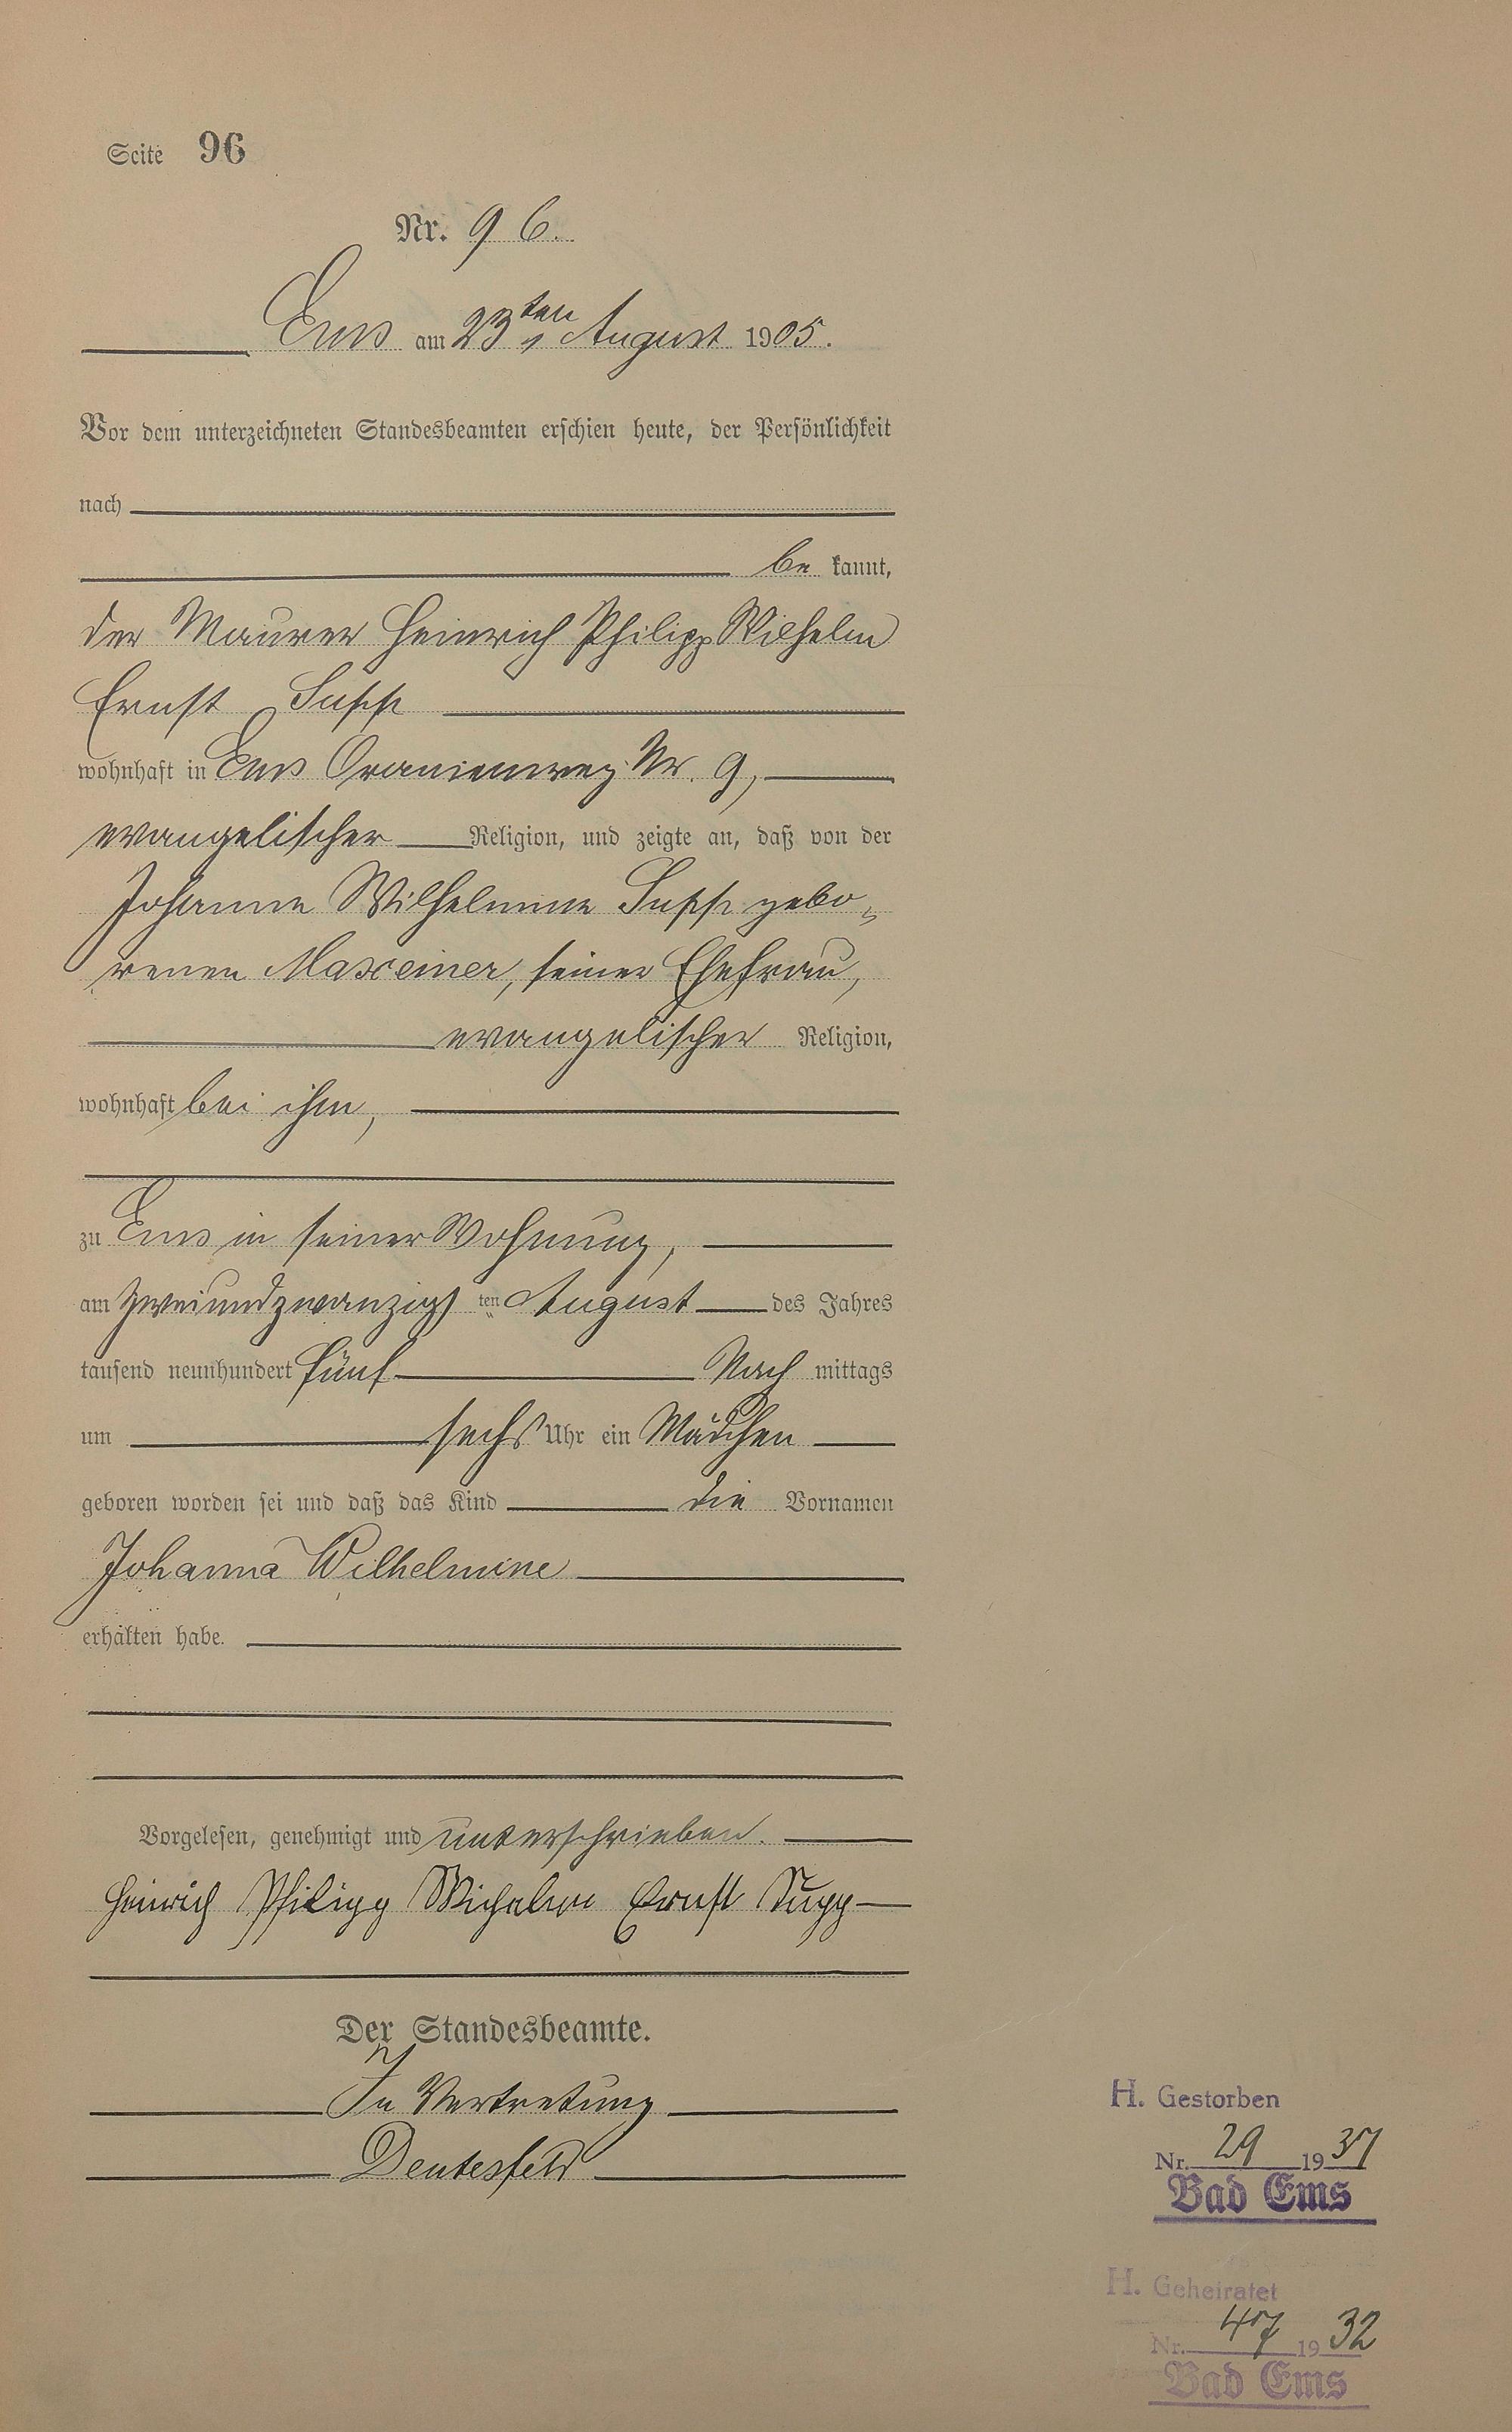 Seite 96
Nr. 96.
Ems am 23ten August 1905.
Vor dem unterzeichneten Standesbeamten erschien heute, der Persönlichkeit
nach
be kannt,
der Maurer Heinrich Philipp Wilhelm
Ernst Supp
wohnhaft in Ems Oranienweg Nr. 9,
evangelischer Religion, und zeigte an, daß von der
Johanna Wilhelmine Supp gebo-
renen Maxeiner, seiner Ehefrau,
evangelischer Religion,
wohnhaft bei ihm,
zu Ems in seiner Wohnung,
am zweiundzwanzigs ten August des Jahres
tausend neunhundert fünf Nach mittags
um sechs Uhr ein Mädchen
geboren worden sei und daß das Kind die Vornamen
Johanna Wilhelmine
erhalten habe.
Vorgelesen, genehmigt und unterschrieben.
Heinrich Philipp Wilhelm Ernst Supp
Der Standesbeamte.
In Vertretung
Deutesfeld
H. Gestorben
Nr. 29 1937
Bad Ems
H. Geheiratet
Nr. 47 1932
Bad Ems